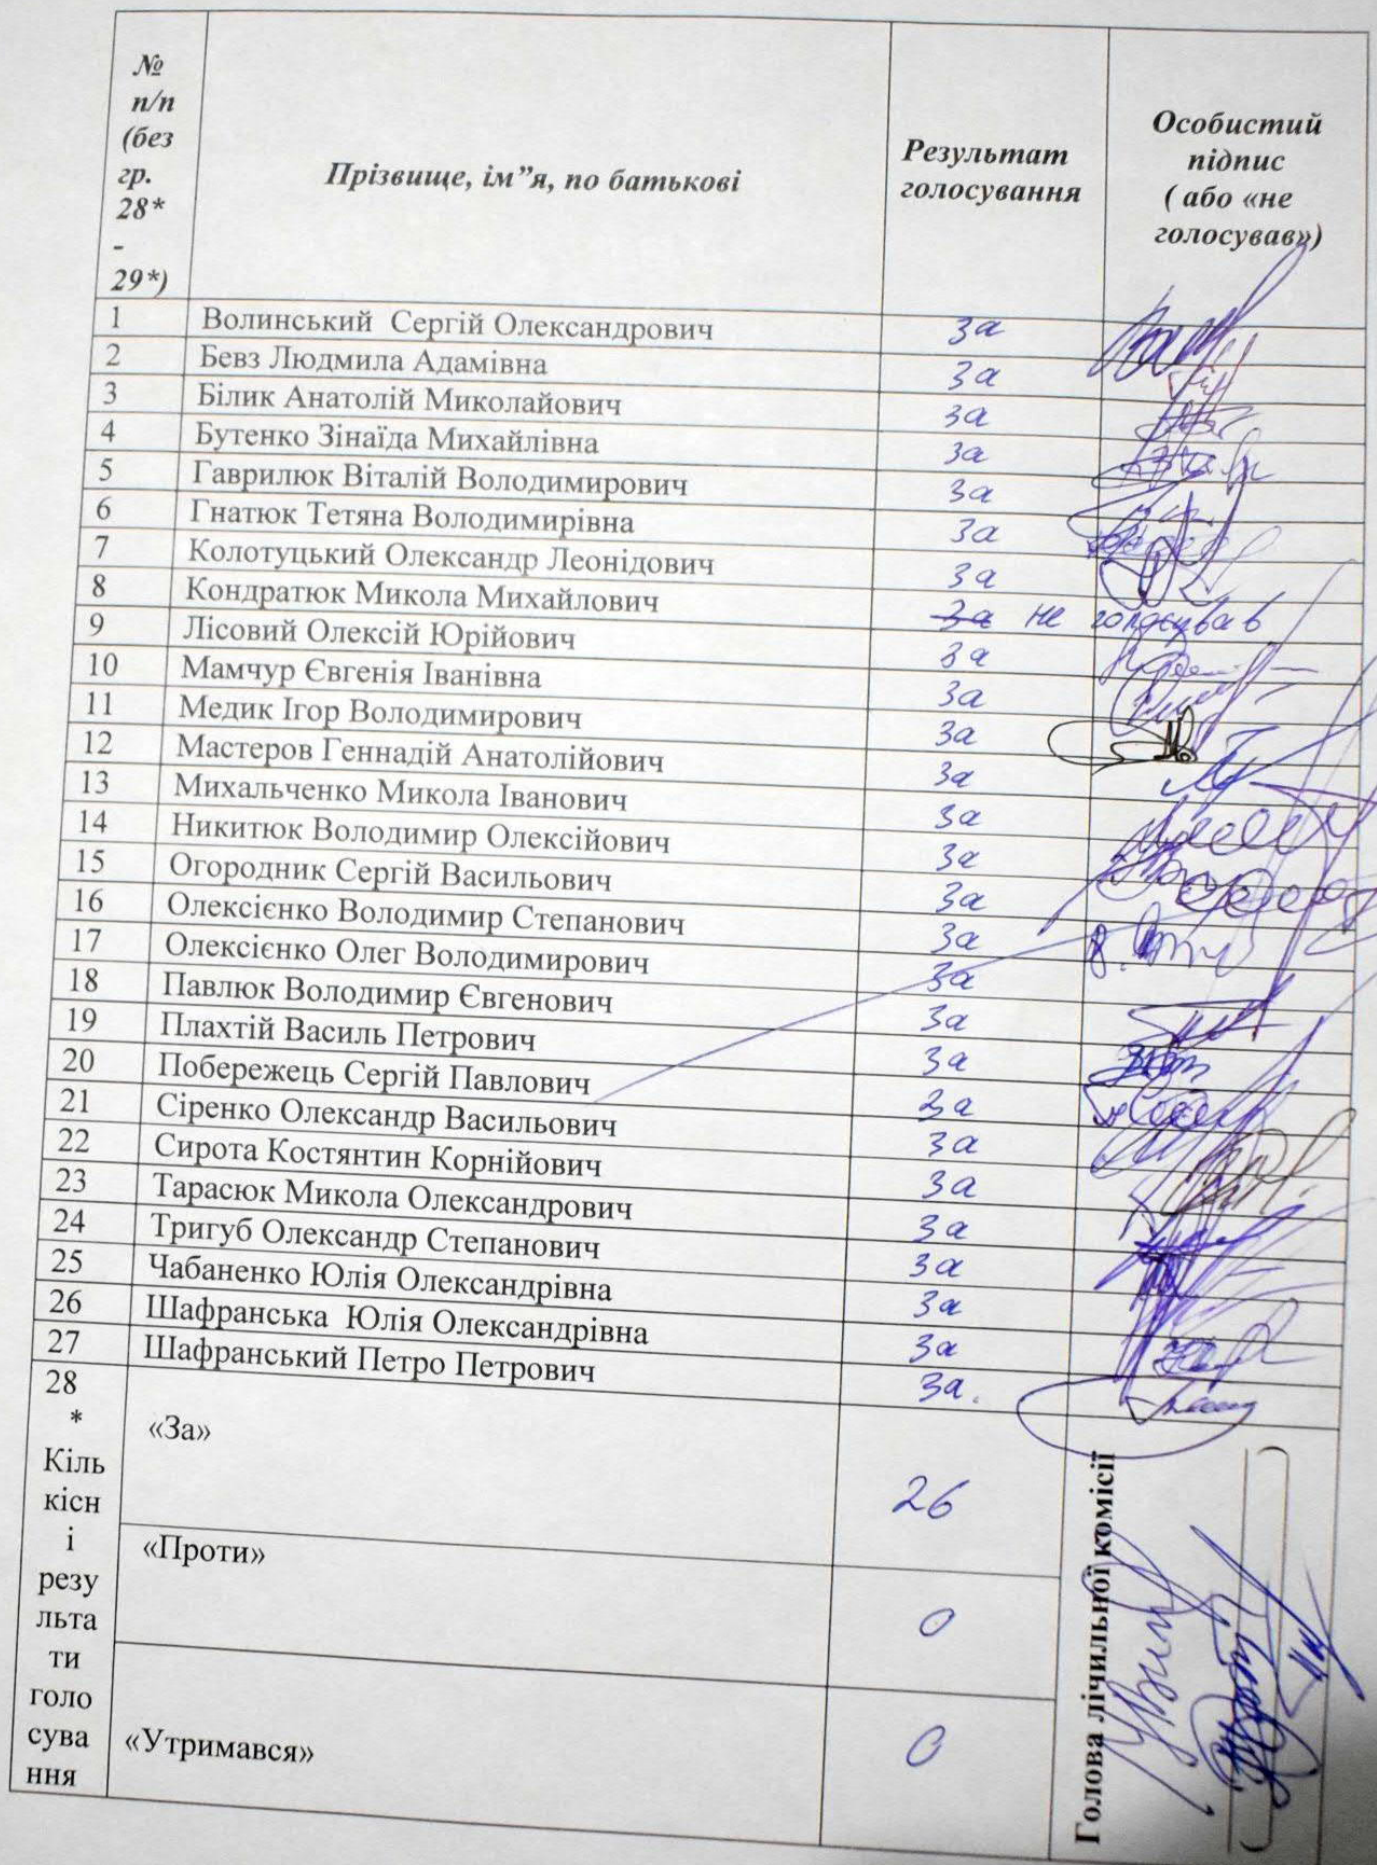 №
п/п
(без
гр.
28*
-
29*)
Прізвище, ім”я, по батькові
Результат
голосування
Особистий
підпис
( або «не
голосував»)
1 Волинський Сергій Олександрович за
2 Бевз Людмила Адамівна за
3 Білик Анатолій Миколайович за
4 Бутенко Зінаїда Михайлівна за
5 Гаврилюк Віталій Володимирович за
6 Гнатюк Тетяна Володимирівна за
7 Колотуцький Олександр Леонідович за
8 Кондратюк Микола Михайлович за не голосував
9 Лісовий Олексій Юрійович за
10 Мамчур Євгенія Іванівна за
11 Медик Ігор Володимирович за
12 Мастеров Геннадій Анатолійович за
13 Михальченко Микола Іванович за
14 Никитюк Володимир Олексійович за
15 Огородник Сергій Васильович за
16 Олексієнко Володимир Степанович за
17 Олексієнко Олег Володимирович за
18 Павлюк Володимир Євгенович за
19 Плахтій Василь Петрович за
20 Побережець Сергій Павлович за
21 Сіренко Олександр Васильович за
22 Сирота Костянтин Корнійович за
23 Тарасюк Микола Олександрович за
24 Тригуб Олександр Степанович за
25 Чабаненко Юлія Олександрівна за
26 Шафранська Юлія Олександрівна за
27 Шафранський Петро Петрович за.
28
*
Кіль
кісн
і
резу
льта
ти
голо
сува
ння
«За» 26
«Проти» 0
«Утримався» 0
Голова лічильної комісії
( )